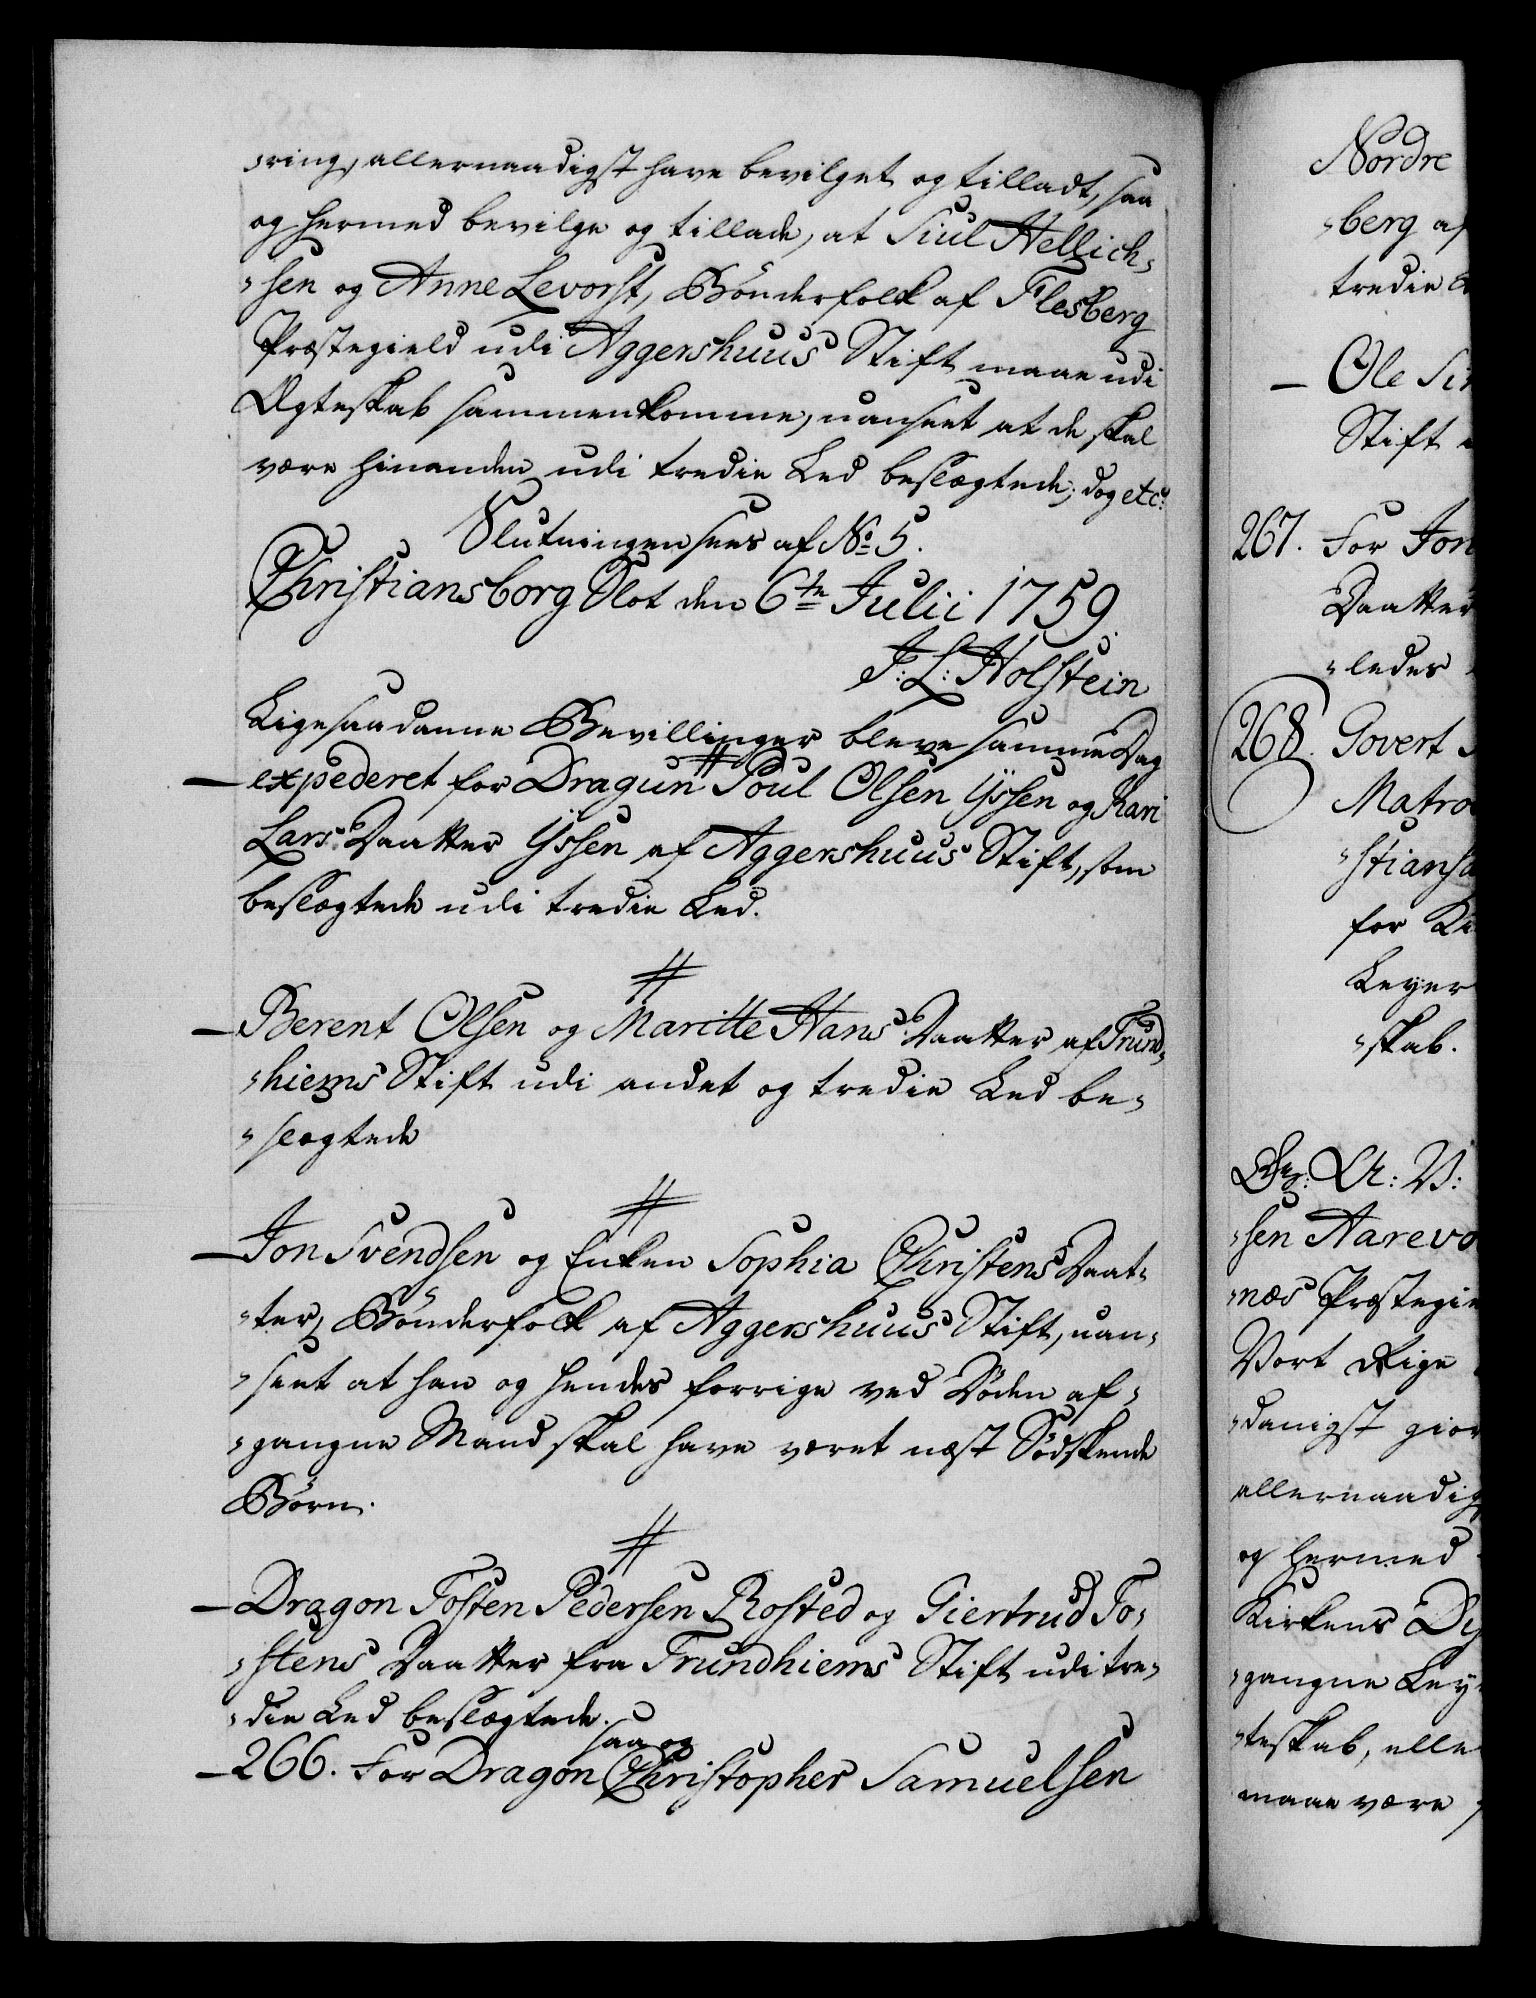 -ring, allernaadigst have bevilget og tilladt, saa
og hermed bevilge og tillade, at Siul Hellich-
-sen og Anne Levorsd, Bønderfolk af Flesberg
Præstegield udi Aggershuus Stift maae udi
Ægteskab sammenkomme, uanseet at de skal
være hinanden udi tredie Led beslægtede; dog etc:
Slutningen sees af No 5.
Christiansborg Slot den 6te Julii 1759.
J: L: Holstein
Ligesaadanne Bevillinger bleve samme Dag
expederet for Dragun Poul Olsen Ÿssen og Kari
Lars Daatter Ÿssen af Aggershuus Stift, som
beslægtede udi tredie Led.
//
Berent Olsen og Maritte Hans Daatter af Trund-
-hiems Stift udi andet og tredie Led be-
-slægtede
//
Jon Svendsen og Enken Sophia Christens Daat-
-ter, Bønderfolk af Aggershuus Stift, uan-
-seet at han og hendes forrige ved Døden af-
-gangne Mand skal have været næst Sødskende
Børn.
//
Dragon Tosten Pedersen Rosted og Giertrud To-
-stens Daatter fra Trundhiems Stift udi tre-
-die Led beslægtede.
saa og
266. For Dragon Christopher Samuelsen
Nordre
-berg af
tredie
Ole
Stift
267. For Jon
Daatter
-leder
268. Govert
Matro
-stiansa
for
Leyer
-skab.
Gr: A: V:
-sen Aarevo
-næs Præstegie
Vort Rige
-danigst gior
allernaadig
og hermed
Kirkens
-gangne Ley
-teskab, elle
maae være